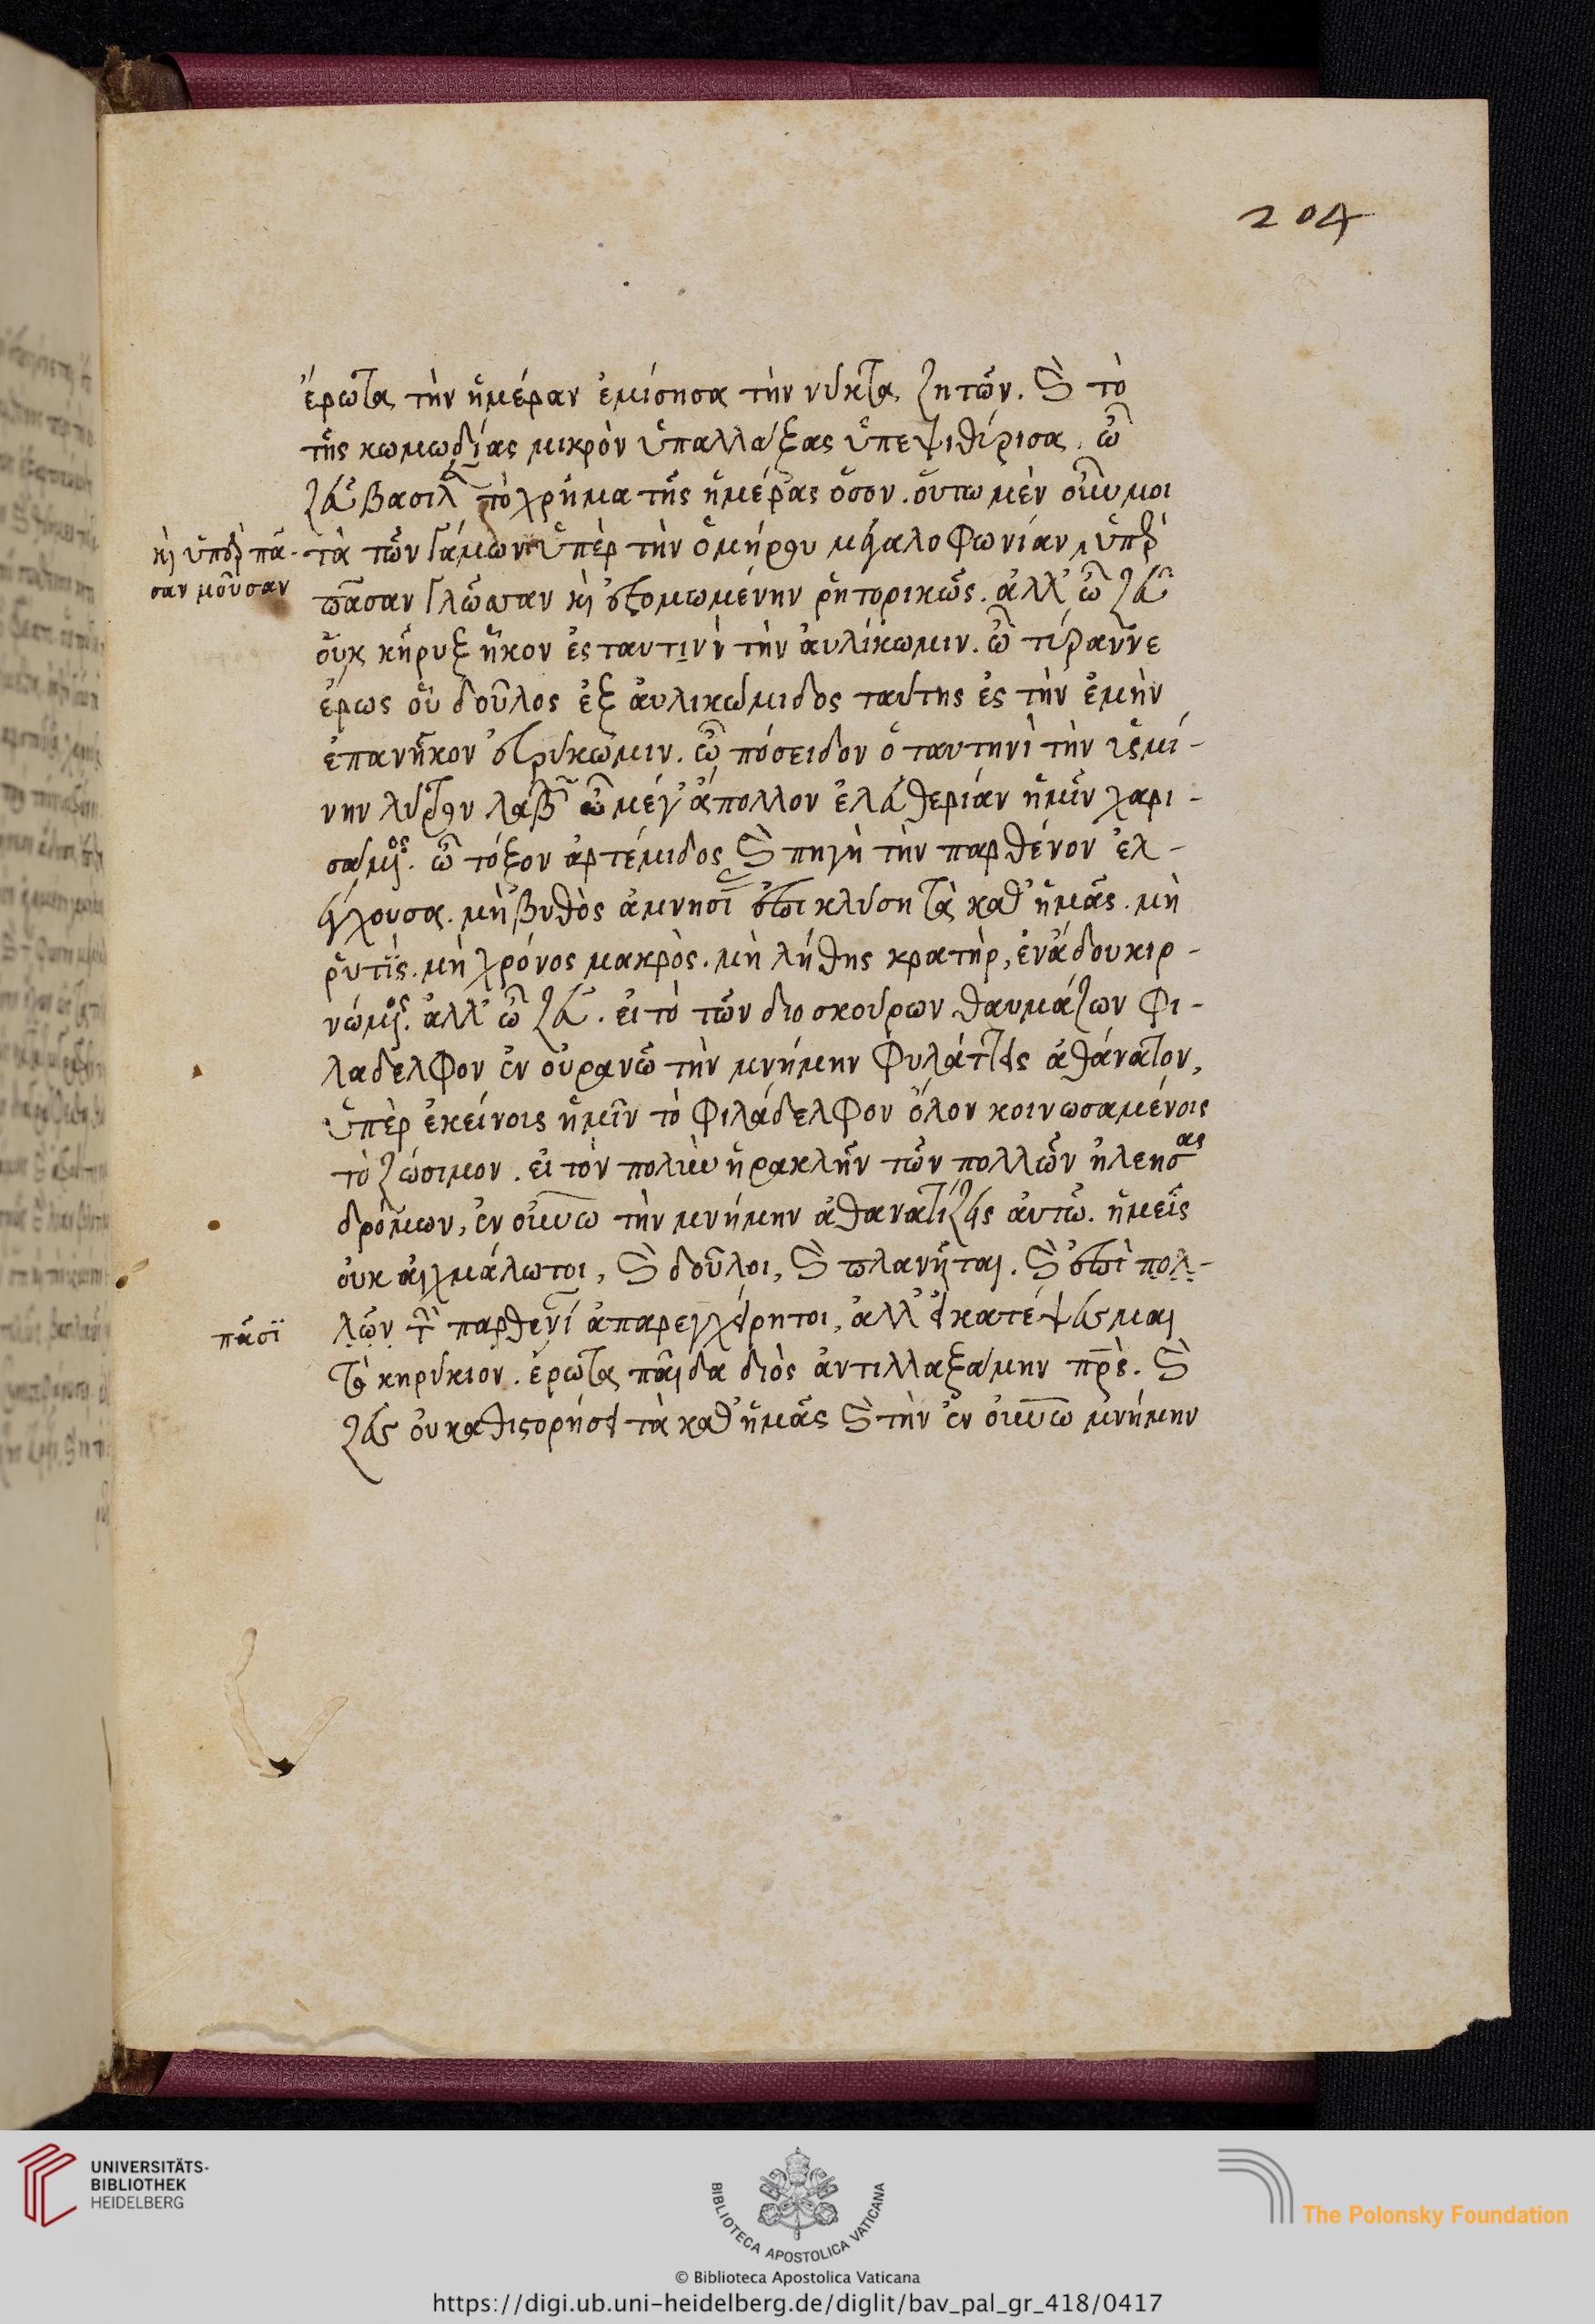 204
ἔρωτα τὴν ἡμέραν ἐμίσησα τὴν νύκτα ζητῶν. καὶ τὸ
τῆς κωμωδίας μικρὸν ὑπαλλάξας ὑπεψιθύρισα, ὦ
ζεῦ βασιλεῦ τὸ χρῆμα τῆς ἡμέρας ὅσον. οὕτω μὲν οὖν μοι
τὰ τῶν γάμων ὑπὲρ τὴν ὁμήρου μεγαλοφωνίαν, ὑπὲρ
καὶ ὑπὲρ πᾶ-
σαν μοῦσαν
πᾶσαν γλῶτταν καὶ ἐστομωμένην ῥητορικῶς. ἀλλ' ὦ ζεῦ
οὐκ κήρυξ ἧκον ἐς ταυτινὴν τὴν ἀυλίκωμιν. ὦ τύραννε
ἔρως οὐ δοῦλος ἐξ ἀυλικώμιδος ταύτης ἐς τὴν ἐμὴν
ἐπανῆκον ἐυρύκωμιν. ὦ πόσειδον ὁ ταυτηνὶ τὴν
λαβὼν ὦ μέγ' ἄπολλον ἐλευθερίαν ἡμῖν χαρι-
σάμενος. ὦ τόξον ἀρτέμιδος καὶ πηγὴ τὴν παρθένον ἐλ-
έγχουσα. μὴ βυθὸς ἀμνηστίας ἐπικλύση τὰ καθ' ἡμᾶς. μὴ
ῥυτὶς. μὴ χρόνος μακρὸς. μὴ λήθης κρατὴρ, ἐν ἅδου κιρ-
νώμενος. ἀλλ' ὦ ζεῦ. εἰ τὸ τῶν διοσκούρων θαυμάζων φι-
λάδελφον ἐν οὐρανῶ τὴν μνήμην φυλάττεις ἀθάνατον,
ὑπὲρ ἐκείνοις ἡμῖν τὸ φιλάδελφον ὅλον κοινωσαμένοις
τὸ ζώσιμον. εἰ τὸν πολὺν ἡρακλῆν τῶν πολλῶν ἠλέησας
δρόμων, ἐν οὐνῶ τὴν μνήμην ἀθανατίζεις ἀυτῶ. ἡμεῖς
οὐκ αἰχμάλωτοι, καὶ δοῦλοι, καὶ πλανῆται. καὶ ἐπὶ πολ-
λῶν τῆ παρθενία ἀπαρεγχείρητοι, ἀλλ' εἰ κατέψευσμαι
πᾶσι
τὸ κηρύκιον. ἔρωτα παῖδα διὸς ἀντιλλαξάμην πρς. καὶ
ζεὺς οὐ καθιστορήσει τὰ καθ' ἡμᾶς καὶ τὴν ἐν οὐνῶ μνήμην
UNIVERSITÄTS-
BIBLIOTHEK
HEIDELBERG
BIBLIOTECA APOSTOLICA VATICANA
The Polonsky Foundation
© Biblioteca Apostolica Vaticana
https://digi.ub.uni-heidelberg.de/diglit/bav_pal_gr_418/0417